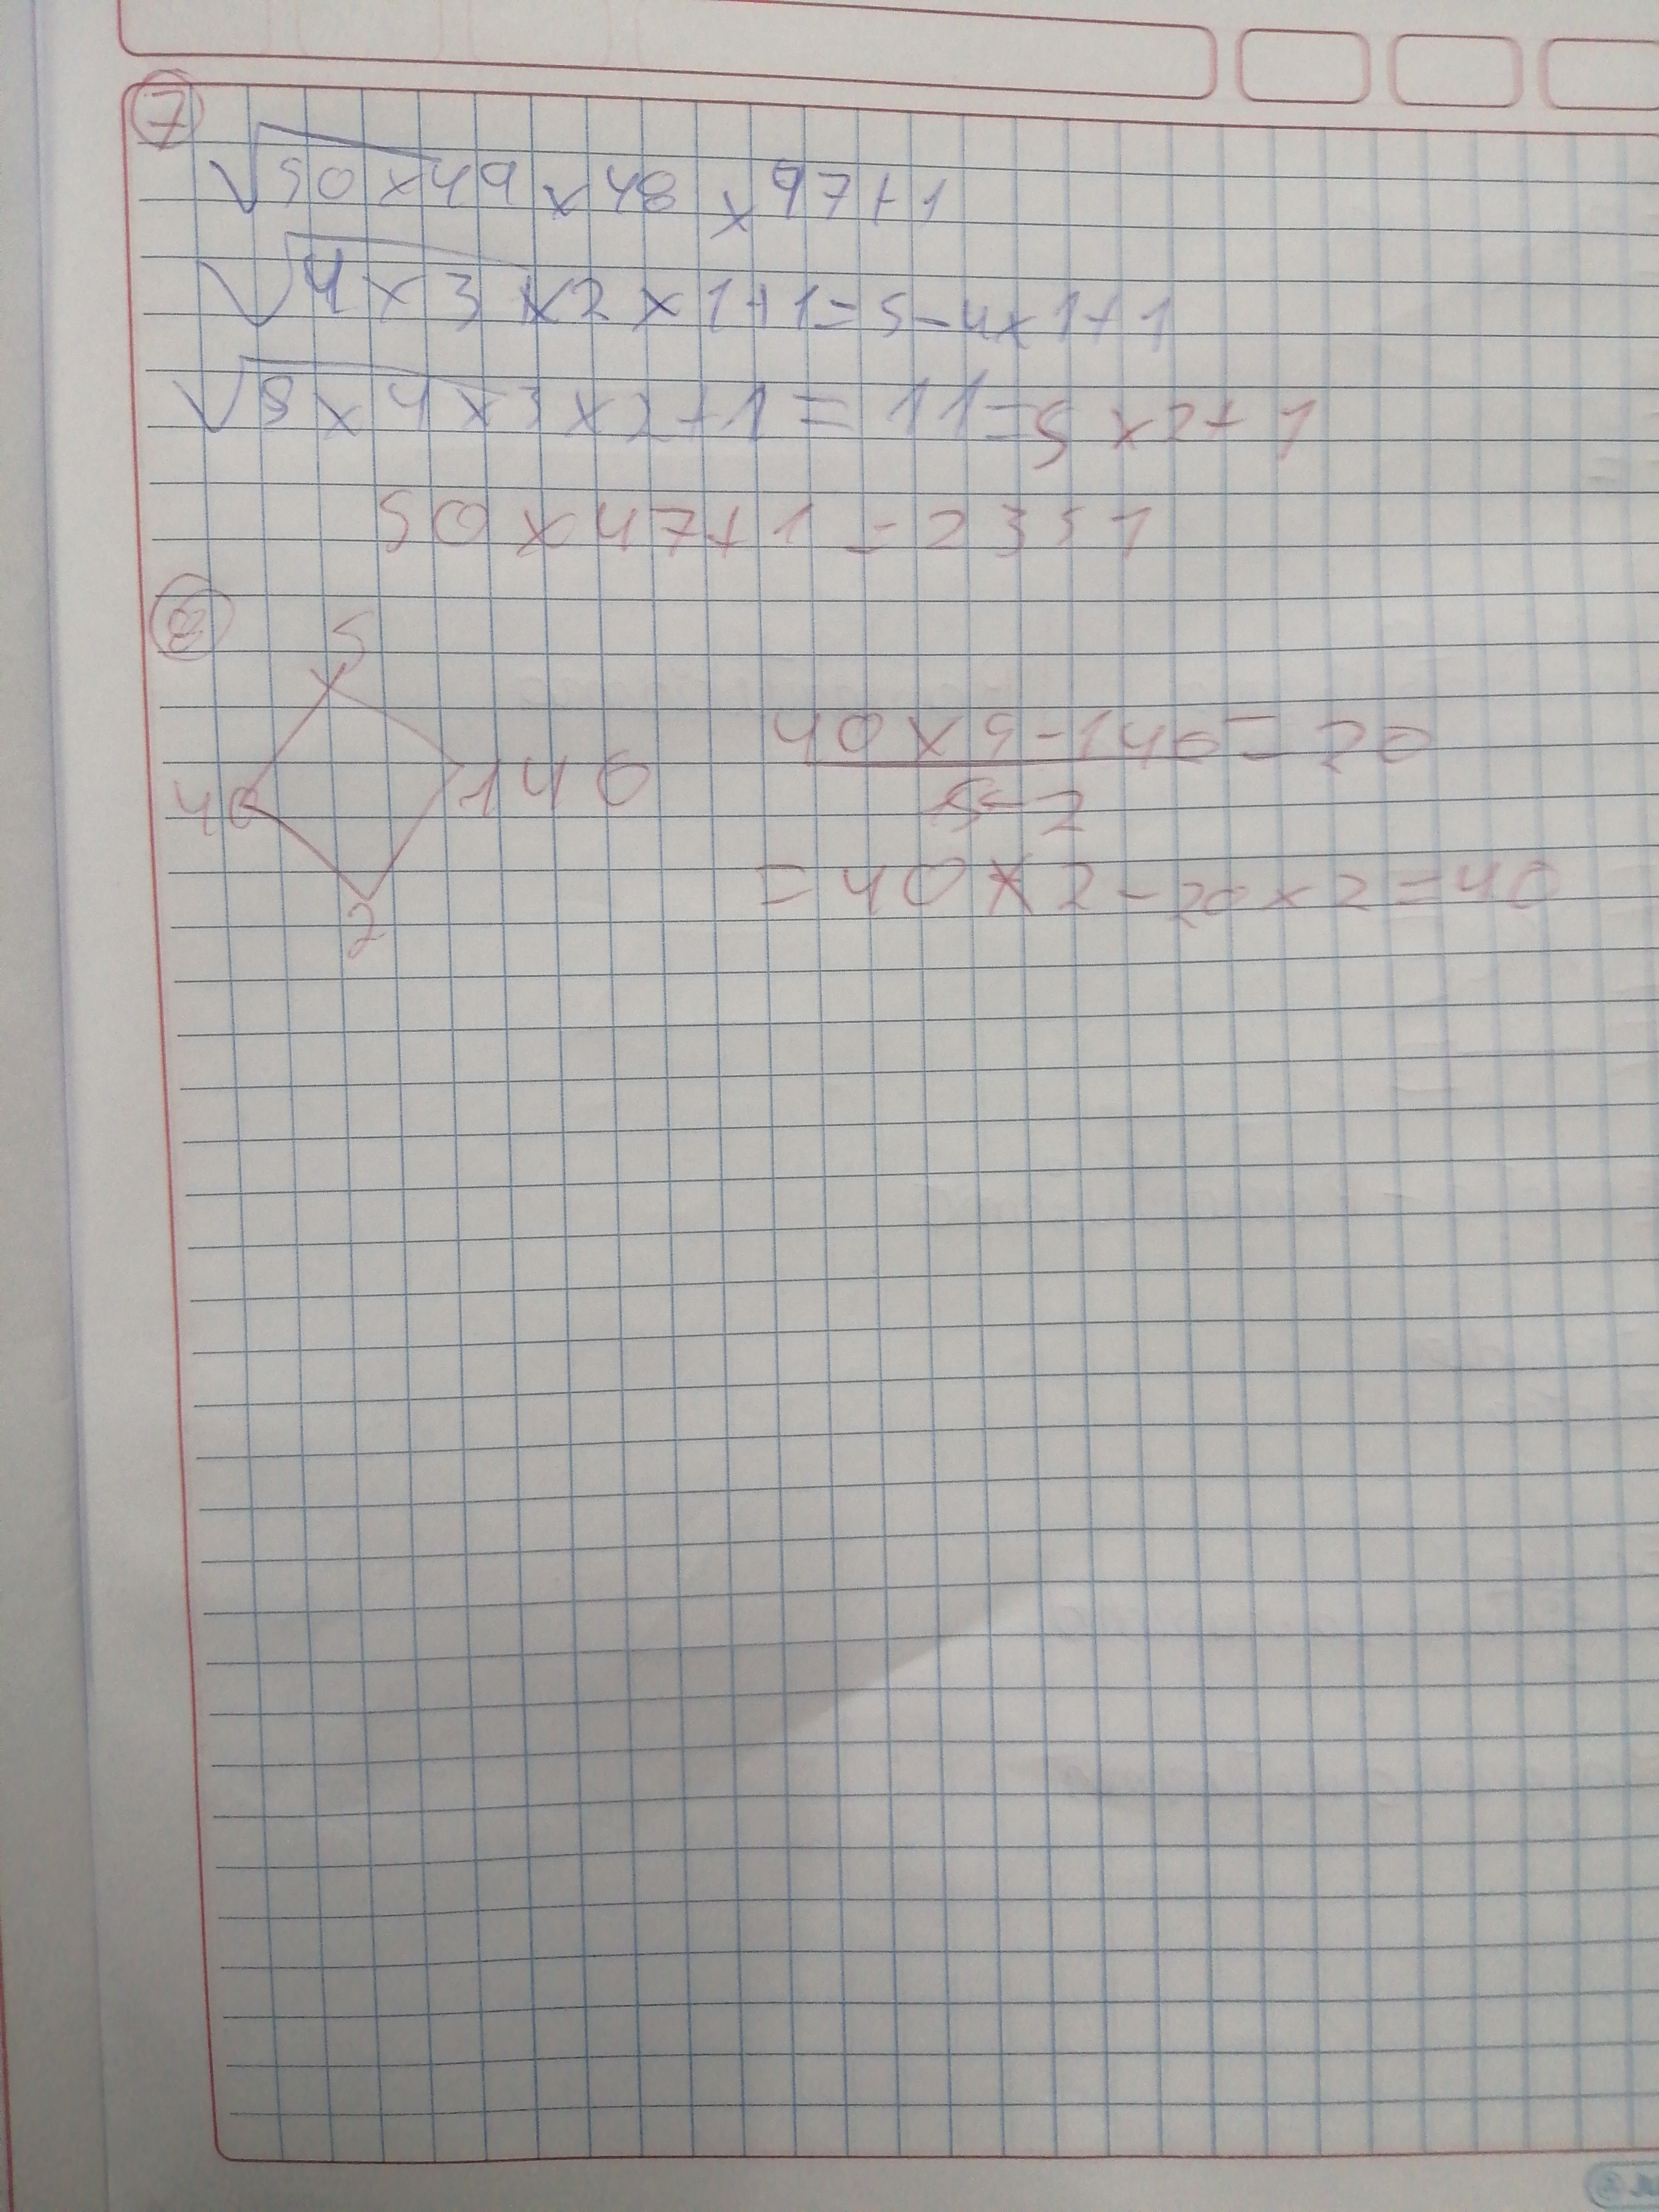 7
√50×49×48×47+1
√4×3×2×1+1=5=4×1+1
√5×4×3×2+1=11=5×2+1
50×47+1=2351
8
5
40
140
2
40×5-140=20
5-2
=40×2-20×2=40